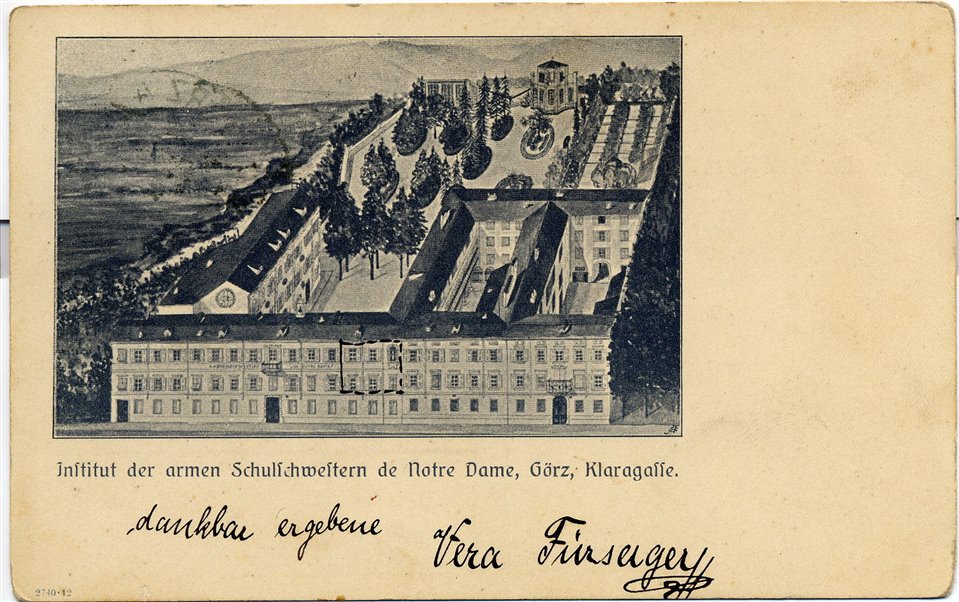 Institut der armen Schulschwestern de Notre Dame, Görz, Klaragasse.
dankbar ergebene
Vera
2740-12